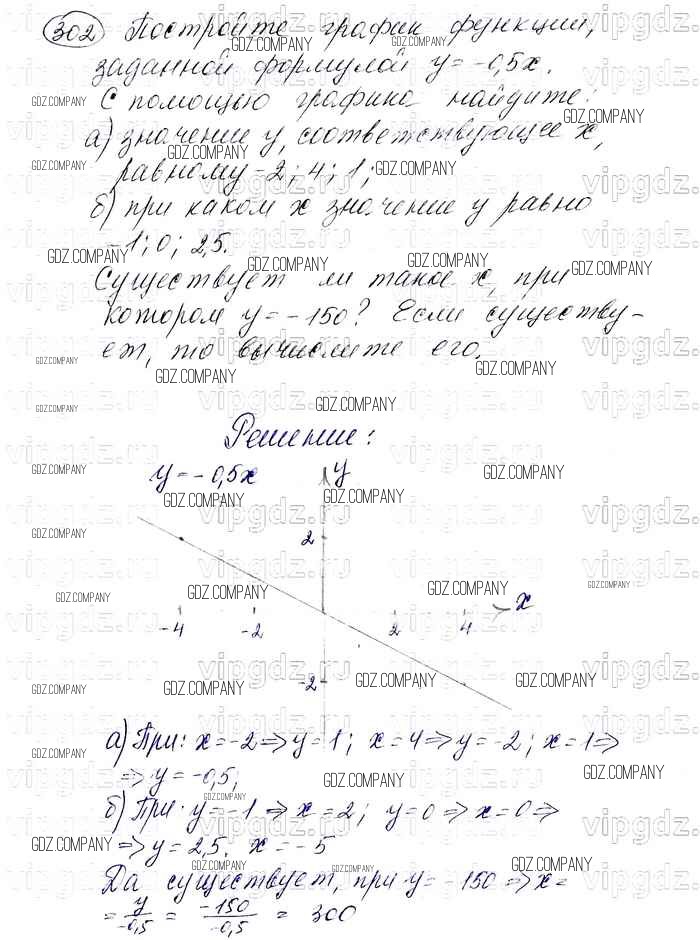 302 Постройте график функции,
заданной формулой y = -0,5x.
С помощью графика найдите:
а) значение y, соответствующее x,
равному -2; 4; 1;
б) при каком x значение y равно
-1; 0; 2,5.
Существует ли такое x, при
котором y = -150? Если существу-
ет, то вычислите его.
Решение:
y = -0,5x
y
2
x
-4 -2 2 4
-2
а) При: x = -2 => y = 1; x = 4 => y = -2; x = 1 =>
=> y = -0,5;
б) При y = -1 => x = 2; y = 0 => x = 0 =>
=> y = 2,5, x = -5
Да существует, при y = -150 => x =
= y/-0,5 = -150/-0,5 = 300
GDZ.COMPANY
vipgdz.ru